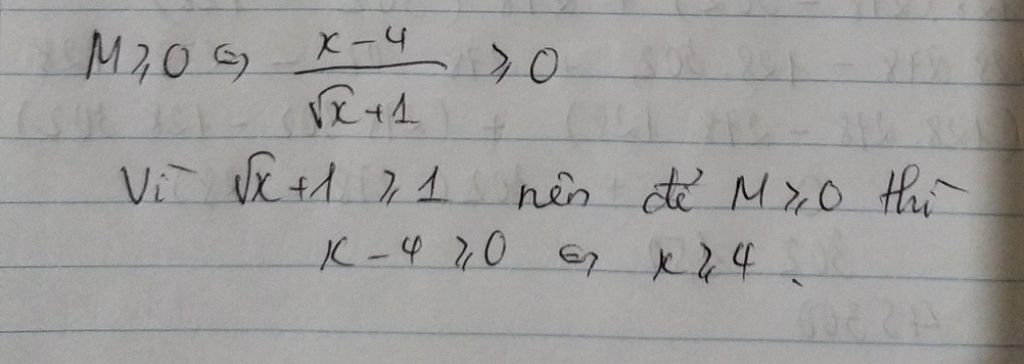 M ≥ 0 ⇔ (x-4)/(√x+1) ≥ 0
Vì √x+1 ≥ 1 nên để M ≥ 0 thì
x-4 ≥ 0 ⇔ x ≥ 4.